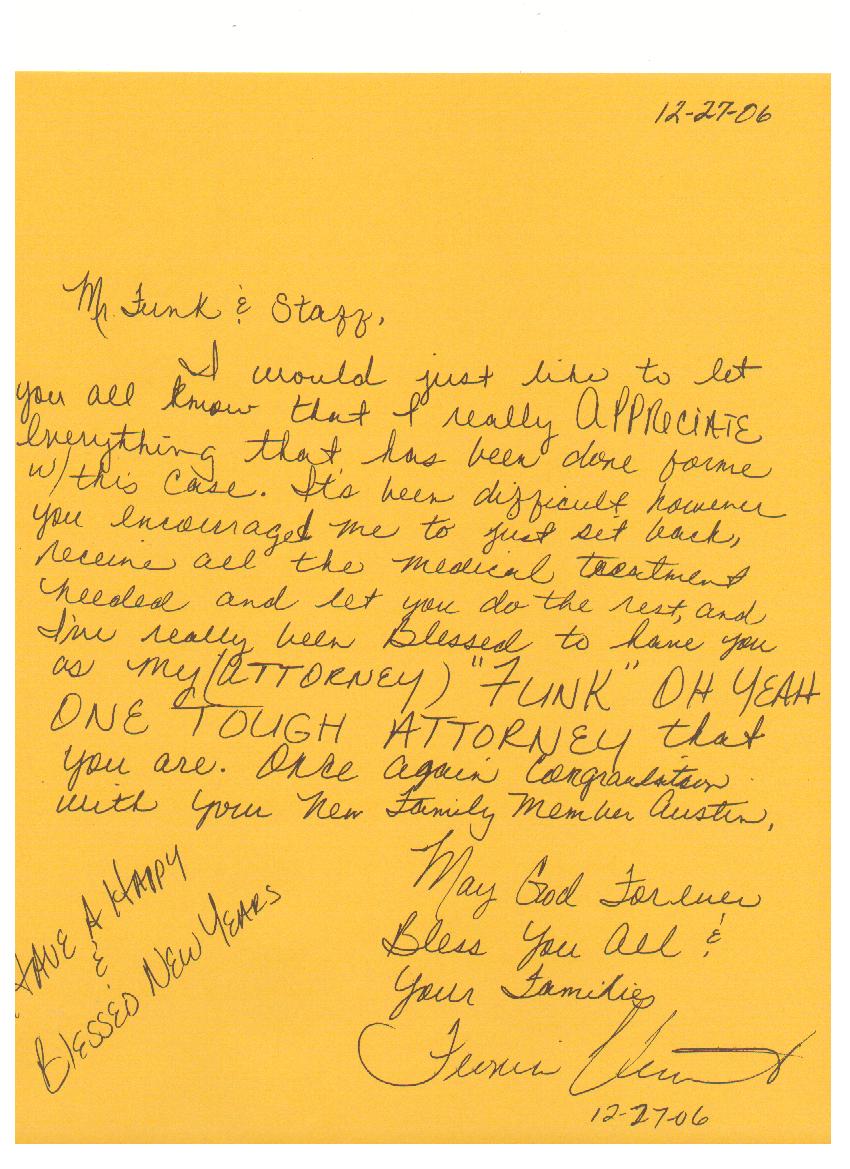 12-27-06
Mr. Funk & Staff,
I would just like to let
you all know that I really APPRECIATE
Everything that has been done forme
w/ this case. It's been difficult however
you encouraged me to just sit back,
receive all the medical treatment
needed and let you do the rest, and
I've really been Blessed to have you
as my (ATTORNEY) "FUNK" OH YEAH
ONE TOUGH ATTORNEY that
you are. Once again
with your New Family Member Austin.
May God Forever
Bless You All &
Your Families
12-27-06
HAVE A HAPPY
&
BLESSED NEW YEARS